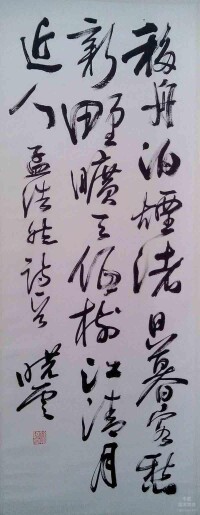 移舟泊烟渚日暮客愁
新野旷天低树江清月
近人
孟浩然诗一首
晓云